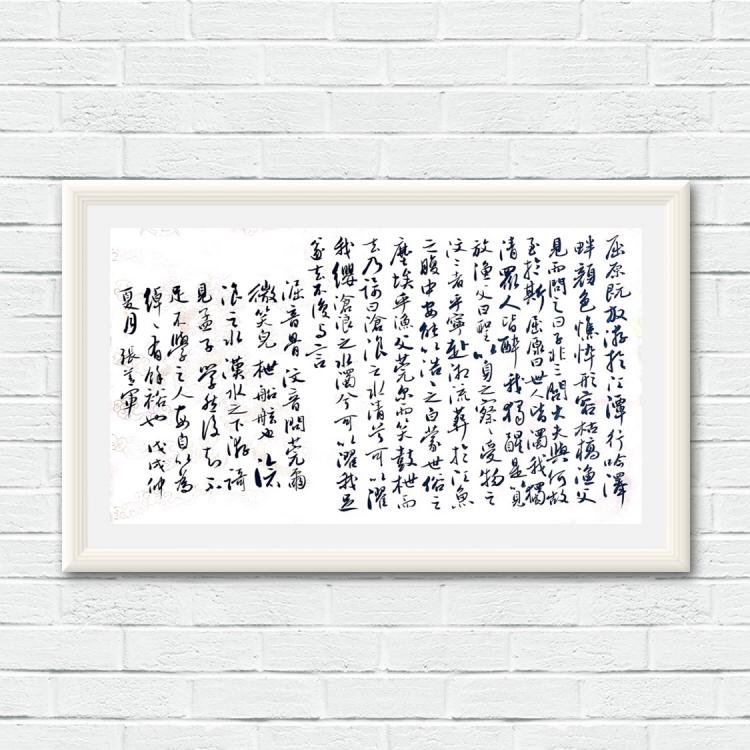 屈原既放游於江潭行吟澤
畔顏色憔悴形容枯槁漁父
見而問之曰子非三閭大夫與何故
至於斯屈原曰世人皆濁我獨
清眾人皆醉我獨醒是以見
放漁父曰以身之察受物之
汶〻者乎寧赴湘流葬於江魚
之腹中安能以浩〻之白蒙世俗之
塵埃乎漁父莞尔而笑鼓枻而
去乃謌曰滄浪之水清兮可以濯
我纓滄浪之水濁兮可以濯我足
遂去不復與言
淈音骨汶音問莞爾
微笑皃枻船舷也滄
浪之水漢水之下游謌
見孟子學然後知不
足不學之人每自以為
綽〻有餘裕也戊戌仲
夏月張軍